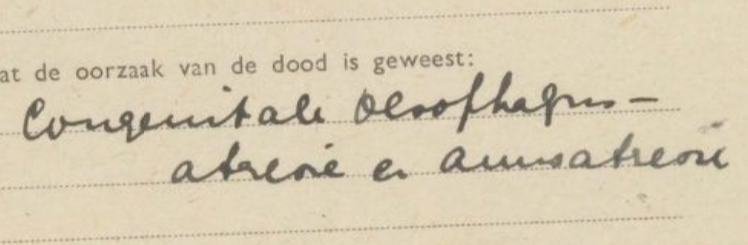 at de oorzaak van de dood is geweest:
Congenitale Oesophagus-
atresie en anusatresie